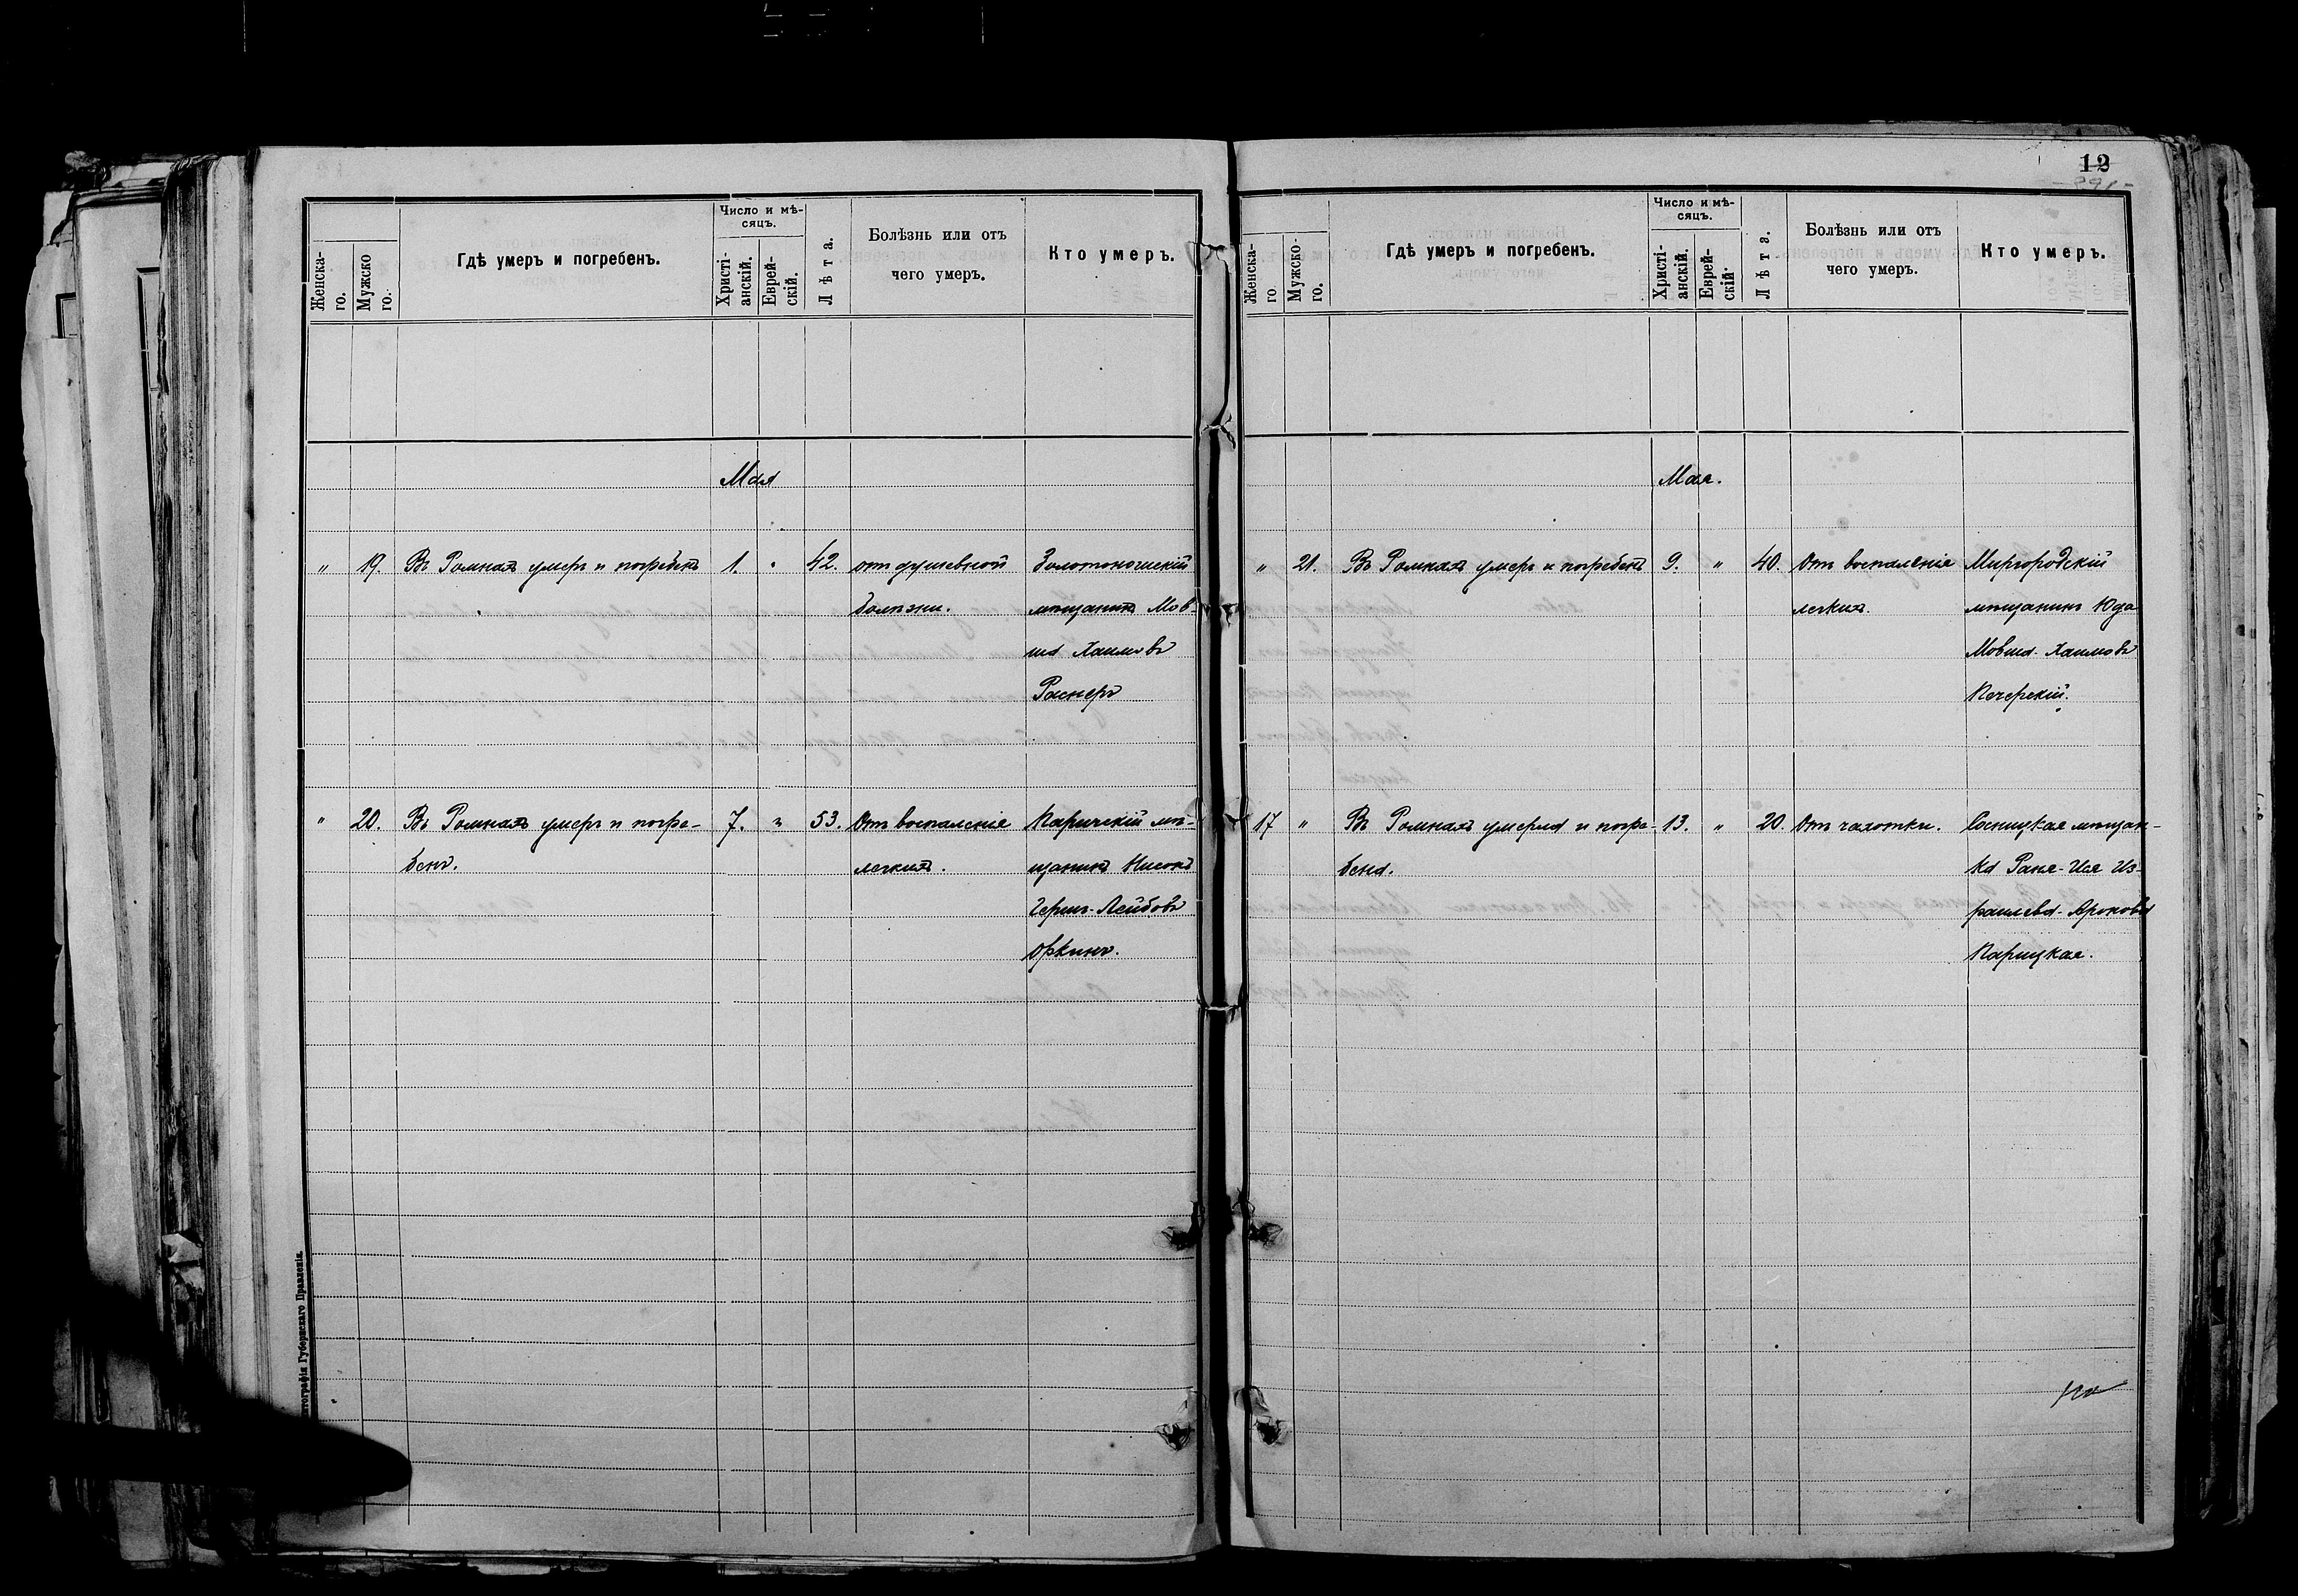 12
Женска-
го.
Мужско
го.
Гдѣ умеръ и погребенъ.
Число и мѣ-
сяцъ.
Христі-
анскій.
Еврей-
скій.
Лѣта.
Болѣзнь или отъ
чего умеръ.
Кто умеръ.
Мая
" 19. Въ Ромнахъ умеръ и погребенъ 1. " 42. отъ душевной Золотоношскій
болѣзни. мѣщанинъ Мов-
ша Хаимовъ
Раснеръ
" 20. Въ Ромнахъ умеръ и погре- 7. " 53. Отъ воспаленія Паричскій мѣ-
бенъ. легкихъ. щанинъ Нисонъ
Герш-Лейбовъ
Оркинъ.
тографія Губернскаго Правленія.
Женска-
го
Мужско-
го.
Гдѣ умеръ и погребенъ.
Число и мѣ-
сяцъ.
Христі-
анскій.
Еврей-
скій.
Лѣта.
Болѣзнь или отъ
чего умеръ.
Кто умеръ.
Мая.
" 21. Въ Ромнахъ умеръ и погребенъ 9. " 40. Отъ воспаленія Миргородскій
легкихъ. мѣщанинъ Юда
Мовша-Хаимовъ
Печерскій.
17 " Въ Ромнахъ умерла и погре- 13. " 20. Отъ чахотки. Сосницкая мѣщан-
бена. ка Раня-Ися Из-
раилева-Аронова
Парицкая.